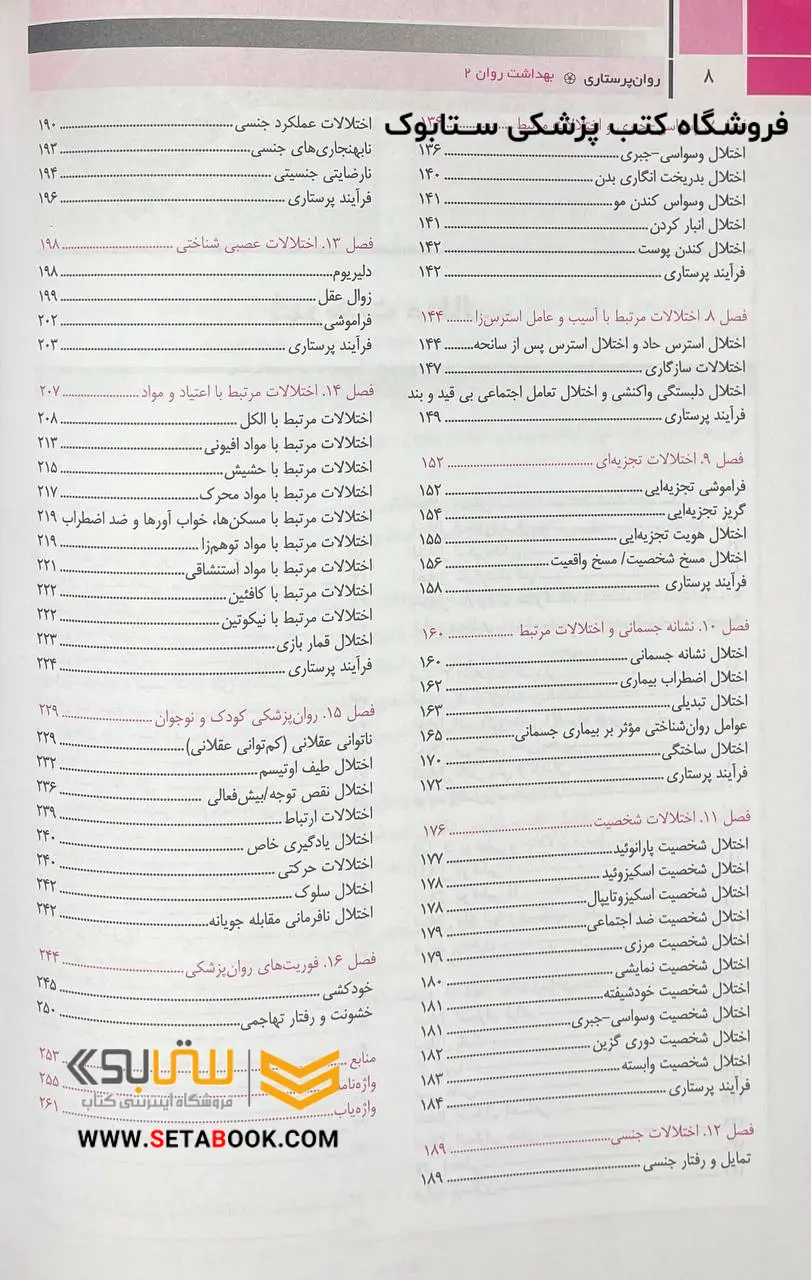 ۸
روان‌پرستاری
بهداشت روان ۲
فروشگاه کتب پزشکی ستابوک
اختلال وسواسی-جبری ۱۳۶
اختلال بدریخت انگاری بدن ۱۴۰
اختلال وسواس کندن مو ۱۴۱
اختلال انبار کردن ۱۴۱
اختلال کندن پوست ۱۴۲
فرآیند پرستاری ۱۴۲
فصل ۸. اختلالات مرتبط با آسیب و عامل استرس‌زا ۱۴۴
اختلال استرس حاد و اختلال استرس پس از سانحه ۱۴۴
اختلالات سازگاری ۱۴۷
اختلال دلبستگی واکنشی و اختلال تعامل اجتماعی بی قید و بند
فرآیند پرستاری ۱۴۹
فصل ۹. اختلالات تجزیه‌ای ۱۵۲
فراموشی تجزیه‌ایی ۱۵۲
گریز تجزیه‌ایی ۱۵۴
اختلال هویت تجزیه‌ایی ۱۵۵
اختلال مسخ شخصیت/ مسخ واقعیت ۱۵۶
فرآیند پرستاری ۱۵۸
فصل ۱۰. نشانه جسمانی و اختلالات مرتبط ۱۶۰
اختلال نشانه جسمانی ۱۶۰
اختلال اضطراب بیماری ۱۶۲
اختلال تبدیلی ۱۶۳
عوامل روان‌شناختی مؤثر بر بیماری جسمانی ۱۶۵
اختلال ساختگی ۱۷۰
فرآیند پرستاری ۱۷۲
فصل ۱۱. اختلالات شخصیت ۱۷۶
اختلال شخصیت پارانوئید ۱۷۷
اختلال شخصیت اسکیزوئید ۱۷۸
اختلال شخصیت اسکیزوتایپال ۱۷۸
اختلال شخصیت ضد اجتماعی ۱۷۹
اختلال شخصیت مرزی ۱۷۹
اختلال شخصیت نمایشی ۱۸۰
اختلال شخصیت خودشیفته ۱۸۱
اختلال شخصیت وسواسی-جبری ۱۸۱
اختلال شخصیت دوری گزین ۱۸۲
اختلال شخصیت وابسته ۱۸۳
فرآیند پرستاری ۱۸۴
فصل ۱۲. اختلالات جنسی ۱۸۹
تمایل و رفتار جنسی ۱۸۹
اختلالات عملکرد جنسی ۱۹۰
نابهنجاری‌های جنسی ۱۹۳
نارضایتی جنسیتی ۱۹۴
فرآیند پرستاری ۱۹۶
فصل ۱۳. اختلالات عصبی شناختی ۱۹۸
دلیریوم ۱۹۸
زوال عقل ۱۹۹
فراموشی ۲۰۲
فرآیند پرستاری ۲۰۳
فصل ۱۴. اختلالات مرتبط با اعتیاد و مواد ۲۰۷
اختلالات مرتبط با الکل ۲۰۸
اختلالات مرتبط با مواد افیونی ۲۱۳
اختلالات مرتبط با حشیش ۲۱۵
اختلالات مرتبط با مواد محرک ۲۱۷
اختلالات مرتبط با مسکن‌ها، خواب آورها و ضد اضطراب ۲۱۹
اختلالات مرتبط با مواد توهم‌زا ۲۱۹
اختلالات مرتبط با مواد استنشاقی ۲۲۱
اختلالات مرتبط با کافئین ۲۲۲
اختلالات مرتبط با نیکوتین ۲۲۲
اختلال قمار بازی ۲۲۳
فرآیند پرستاری ۲۲۴
فصل ۱۵. روان‌پزشکی کودک و نوجوان ۲۲۹
ناتوانی عقلانی (کم‌توانی عقلانی) ۲۲۹
اختلال طیف اوتیسم ۲۳۲
اختلال نقص توجه/بیش‌فعالی ۲۳۶
اختلالات ارتباط ۲۳۹
اختلال یادگیری خاص ۲۴۰
اختلالات حرکتی ۲۴۰
اختلال سلوک ۲۴۲
اختلال نافرمانی مقابله جویانه ۲۴۲
فصل ۱۶. فوریت‌های روان‌پزشکی ۲۴۴
خودکشی ۲۴۵
خشونت و رفتار تهاجمی ۲۵۰
منابع ۲۵۳
۲۵۵
واژه‌یاب ۲۶۱
ستابوک
فروشگاه اینترنتی کتاب
WWW.SETABOOK.COM